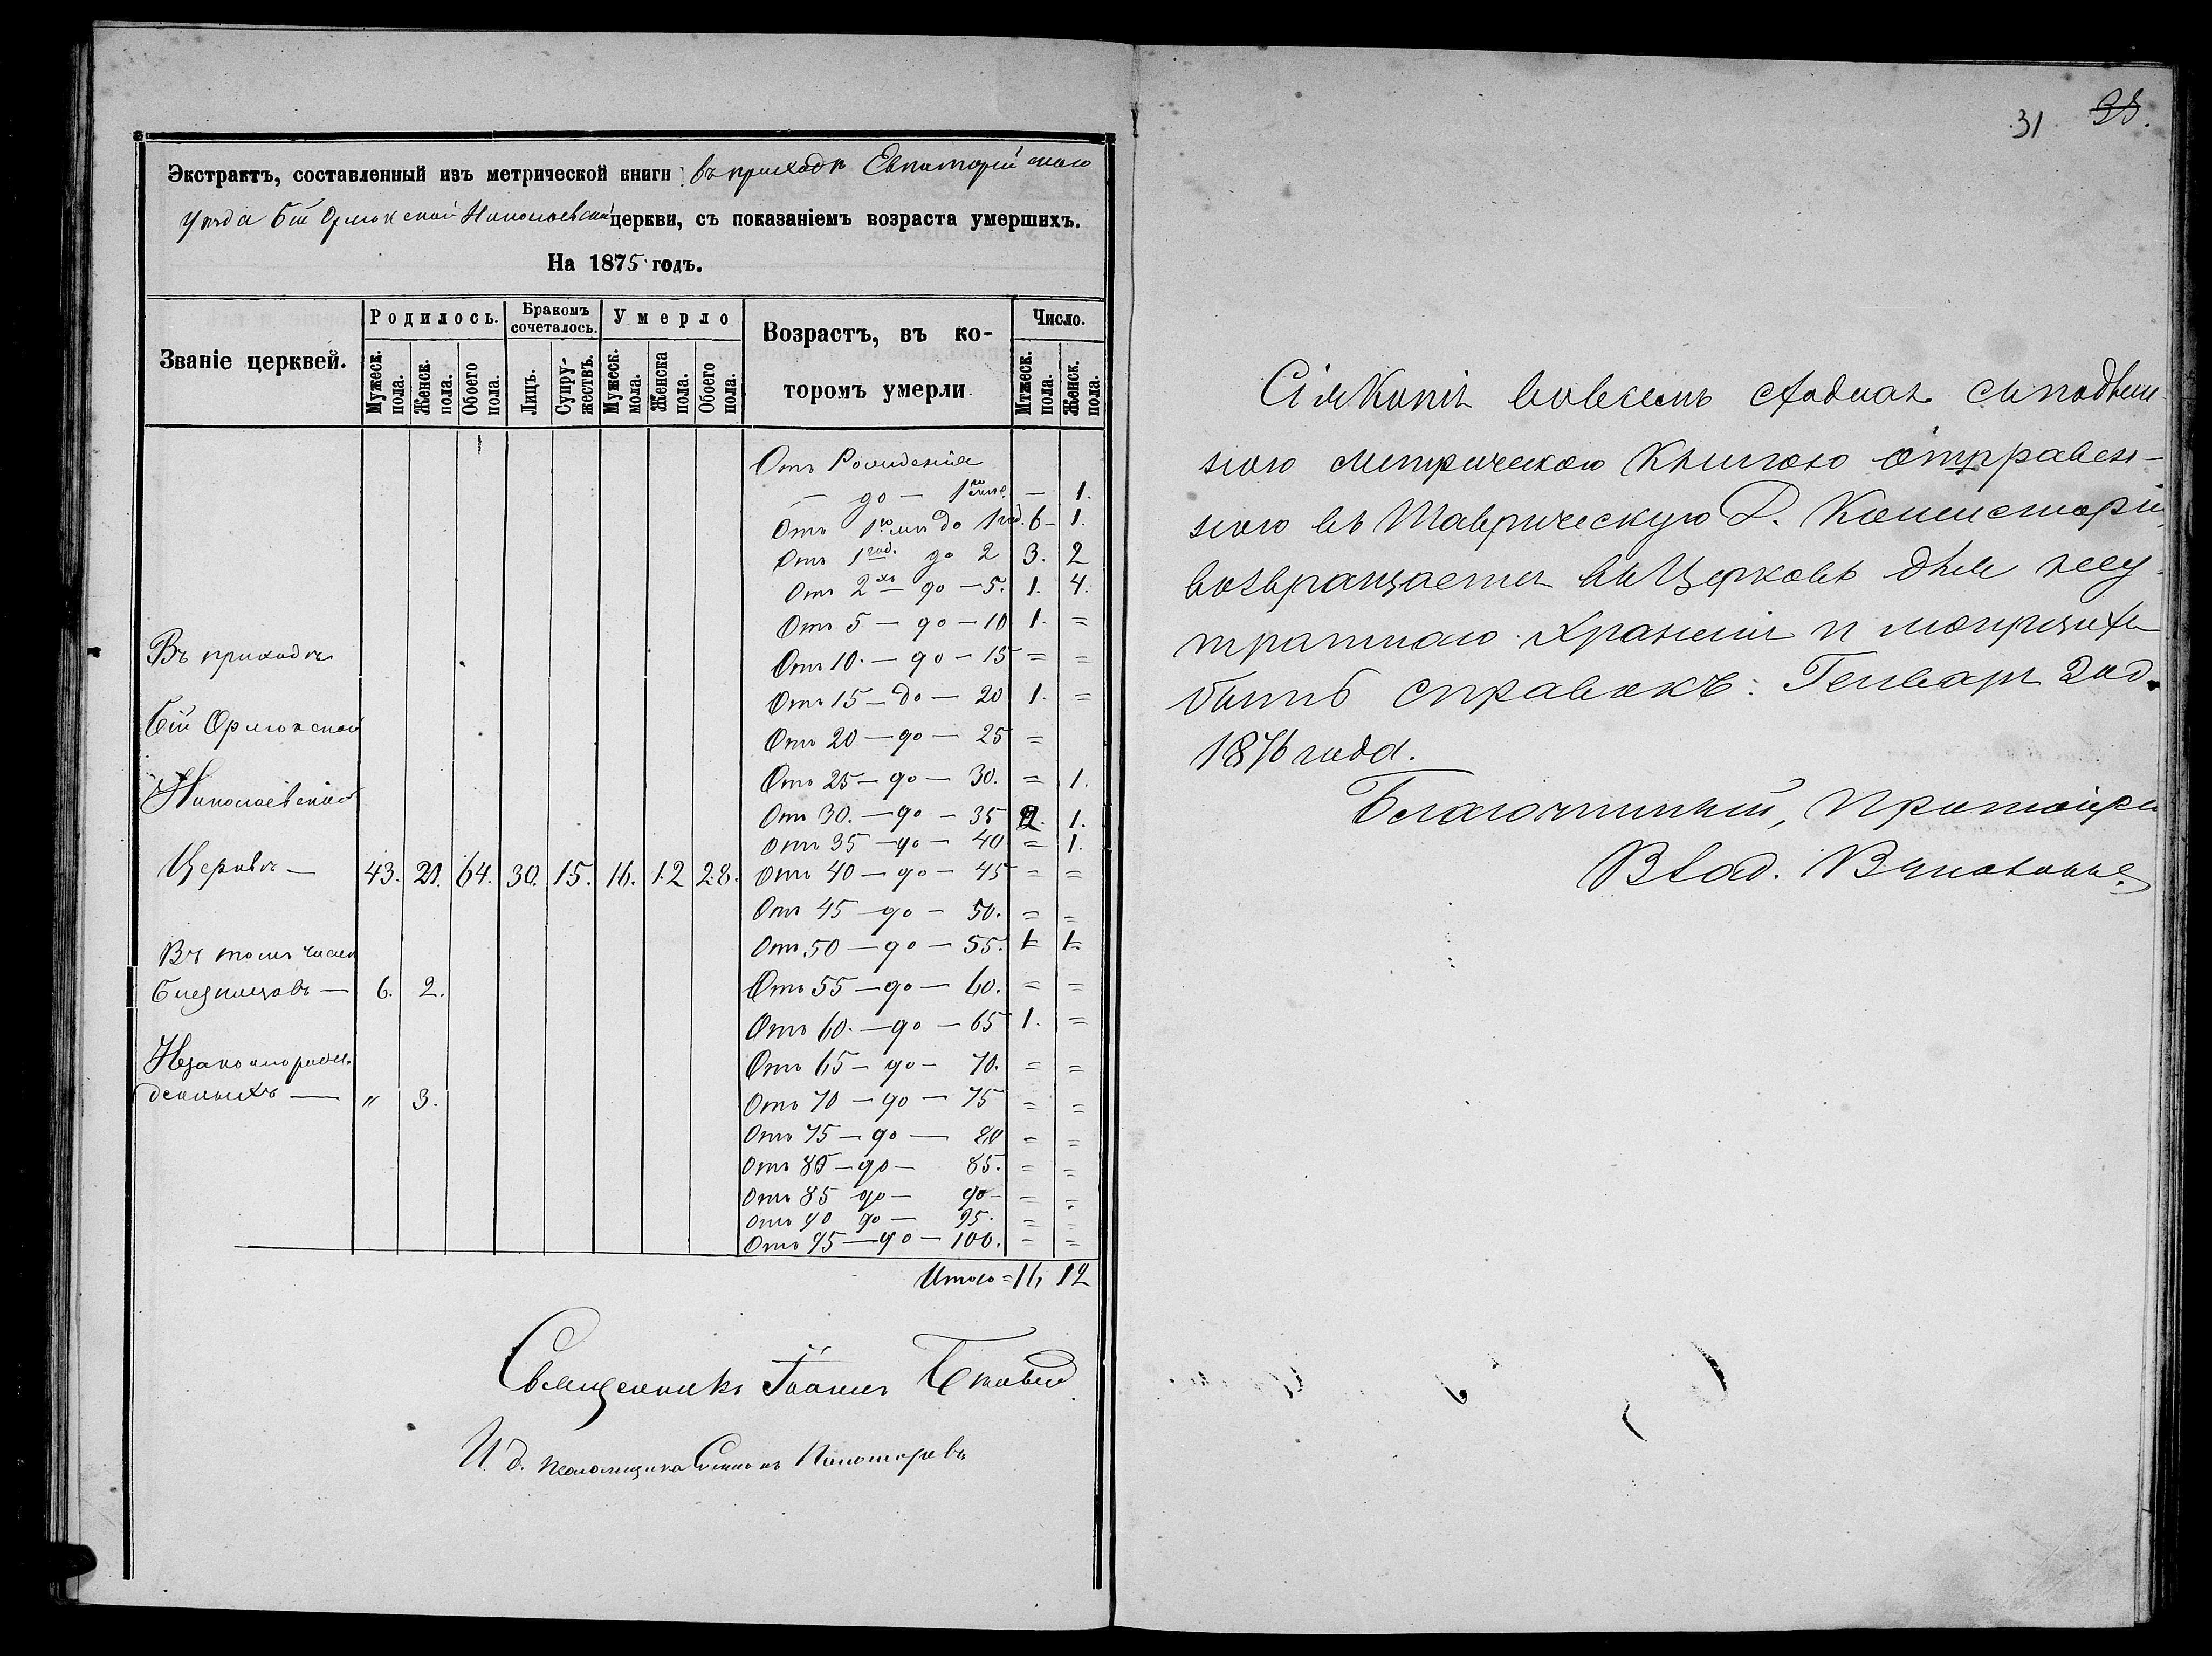 Экстрактъ, составленный изъ метрической книги въ приходѣ Евпаторійскаго
уѣзда Бій Орлюкской Николаевской церкви, съ показаніемъ возраста умершихъ.
На 1875 годъ.
Званіе церквей.
Родилось.
Бракомъ сочеталось.
Умерло
Возрастъ, въ ко-
торомъ умерли
Число.
Мужеск. пола.
Женск. пола.
Обоего пола.
Лицъ.
Супру-жествъ.
Мужеск. мола.
Женска пола.
Обоего пола.
Мтжеск. пола.
Женск. пола.
Отъ Рожденія
— до — 1го мѣс. — 1.
Отъ 1го мѣс до 1 год. 6 — 1.
Отъ 1 год. до 2 3. 2
Отъ 2хъ — до — 5. 1. 4.
Отъ 5 — до — 10 1. =
Въ приходѣ
Отъ 10. — до — 15 = =
Отъ 15 — до — 20 1. =
Бій Орлюкской
Отъ 20 — до — 25 =
Николаевской
Отъ 25 — до — 30. = 1.
Отъ 30. — до — 35 2. 1.
Отъ 35 — до — 40 = 1.
Церкви — 43. 21. 64. 30. 15. 16. 12 28. Отъ 40 — до — 45 = =
Отъ 45 — до — 50. = =
Въ томъ числѣ
Отъ 50 — до — 55. 1 1
близнецовъ — 6. 2.
Отъ 55 — до — 60. = =
Отъ 60. — до — 65 1. =
Незаконорож-
Отъ 65 — до — 70. = =
денныхъ — „ 3.
Отъ 70 — до — 75 = =
Отъ 75 — до — 80 = =
Отъ 80 — до — 85. = =
Отъ 85 до — 90 — = =
Отъ 90 до — 95. = =
Отъ 95 — до — 100. = =
Итого = 16, 12
Священникъ Іоаннъ
И. д. псаломщика
31 38.
Сія Копія вовсемъ сходная съ подлин
ною метрическою Книгою отправлен-
ною въ Таврическую Д. Консисторію,
возвращается въ Церковь для неу
тратнаго храненія и могущихъ
быть справокъ. Генваря 2 од.
1876 года.
Благочинный, Протоіере
Влад.